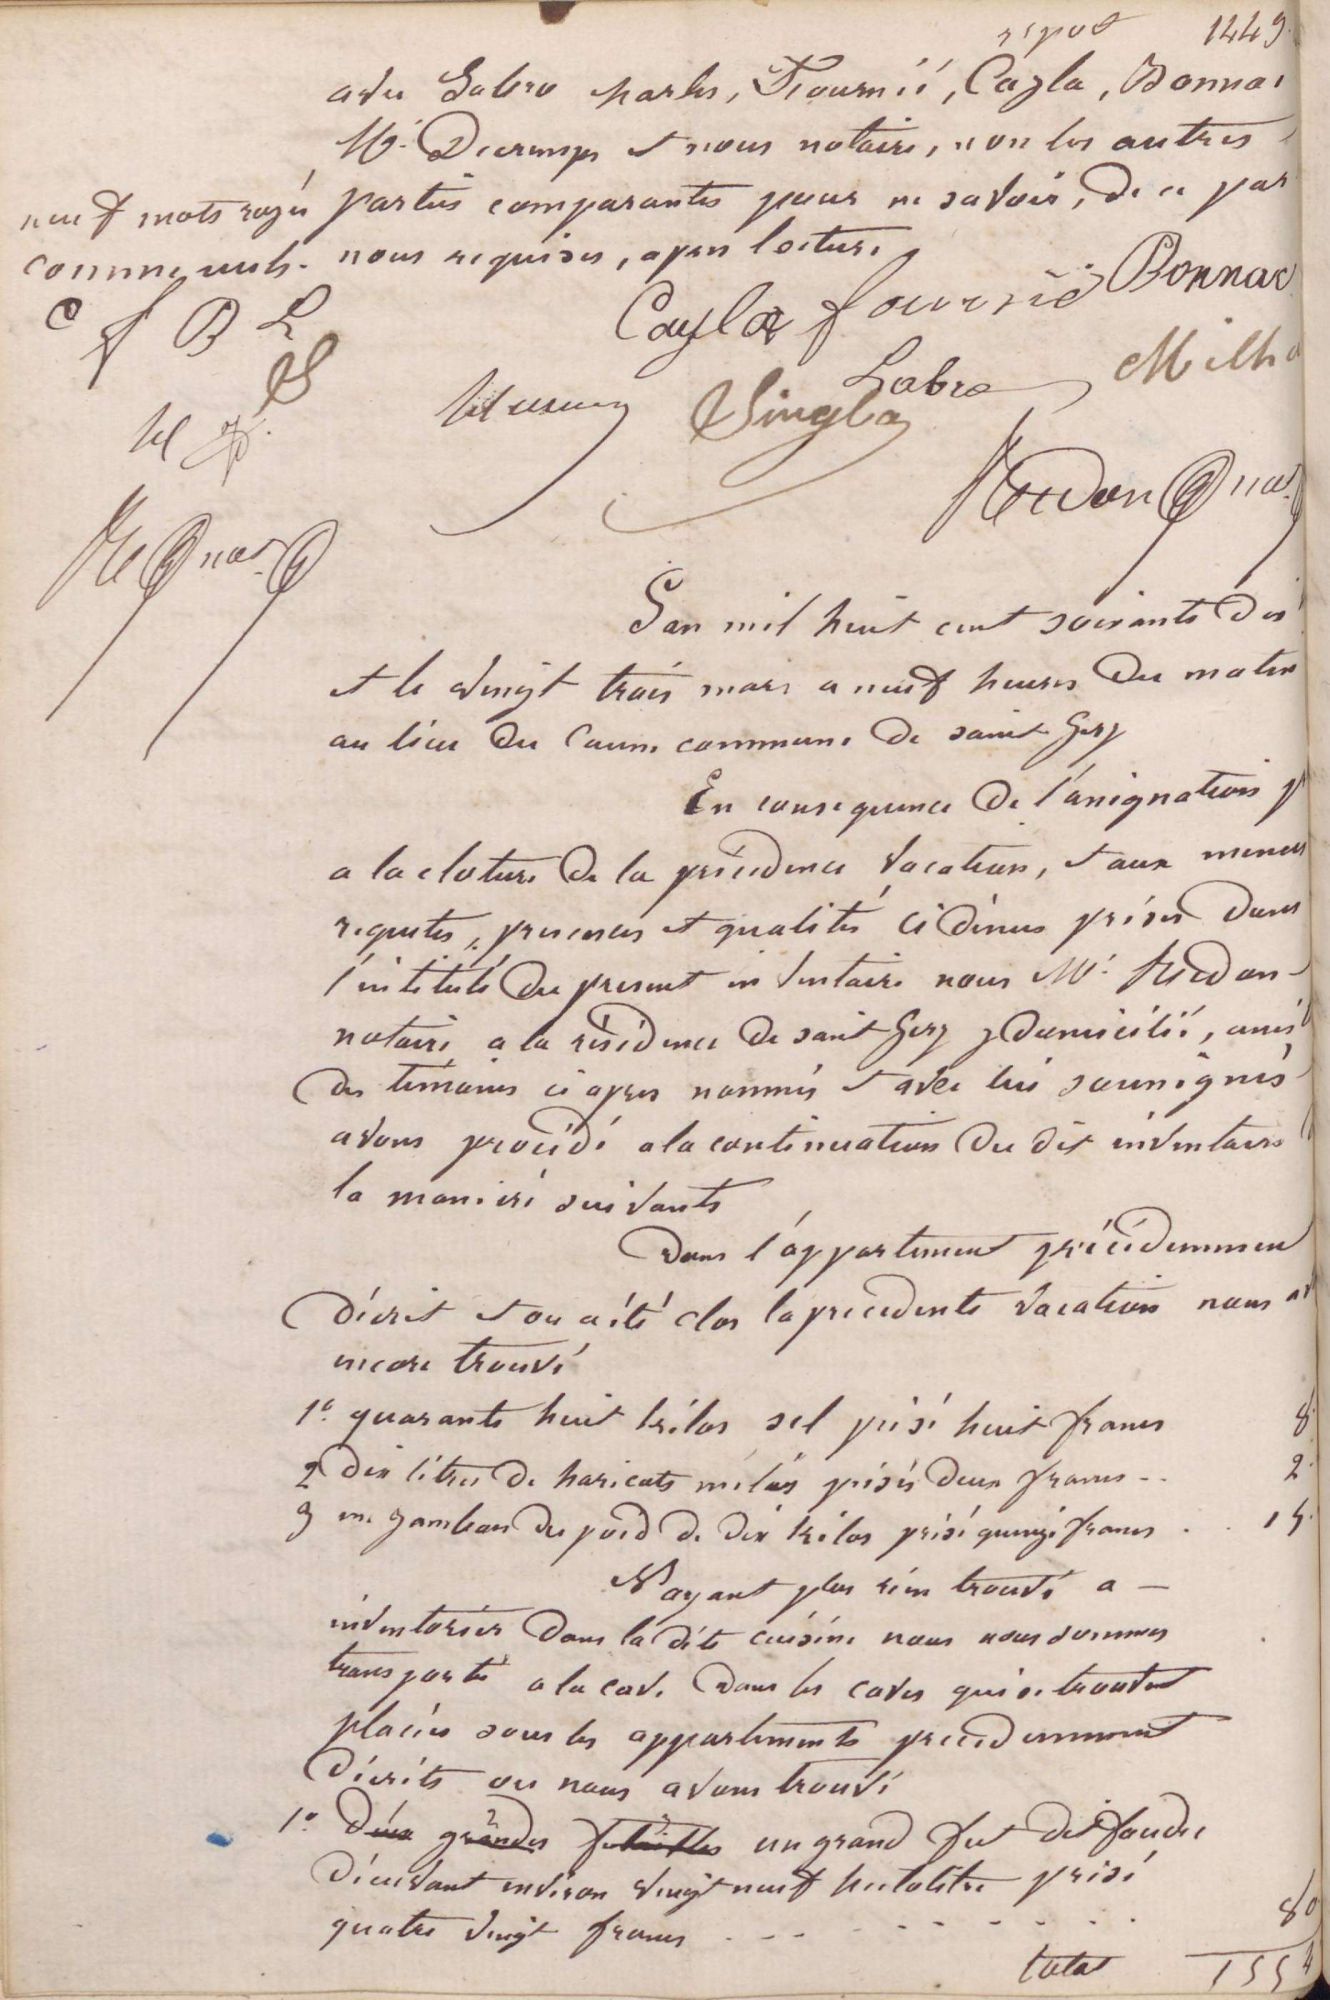 report 1449
avec Labro charles, Fournié, Cayla, Bonnac
Mr. Decremps et nous notaire, non les autres
parties comparantes pour ne savoir, de ce par
nous requises, apres lecture
neuf mots rayés
comme nuls.
C f B L
S
M
Cayla fournié Bonnac
Labro Milha
Singla
Redon not
R not
L'an mil huit cent soixante dix
et le vingt trois mars a neuf heures du matin
au lieu du commune de saint Gery
En consequence de l'assignation
a la cloture de la précédence vacation, et aux memes
requetes, presences et qualités ci dénus prises dans
l'intitulé du present inventaire nous Mr. Redon
notaire a la résidence de saint Gery y domicilié, assisté
des témoins ci apres nommés et avec lui soussignés
avons procédé a la continuation du dit inventaire
la maniéré suivante
Dans l'appartement précédemmen
décrit et ou a été clos la precedente vacation nous av
encore trouvé
1° quarante huit kilos sel prisé huit francs 8
2 dix litres de haricots mélés prisés deux francs -- 2
3 un jambon du poid de dix kilos prisé quinze francs . . 15
N'ayant plus rien trouvé a —
inventorier dans la dite cuisine nous nous sommes
transporté a la cave dans les caves qui se trouvent
placées sous les appartements precedemment
décrits ou nous avons trouvé
1° Deux grandes futailles un grand fut dit foudre
décuvant environ vingt neuf hectolitre prisé
quatre vingt francs - - - - - - - - 80
total 155